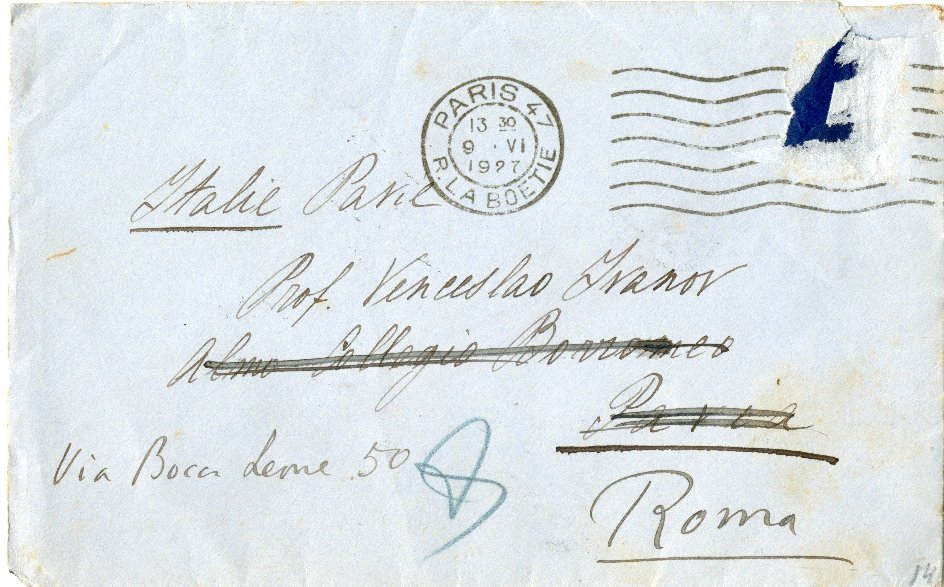 PARIS 47
13 30
9 · VI
1927
R. LA BOETIE
Italie Pavie
Prof. Venceslao Ivanov
Almo Collegio Borromeo
Pavia
Via Bocca Leone 50
Roma
14